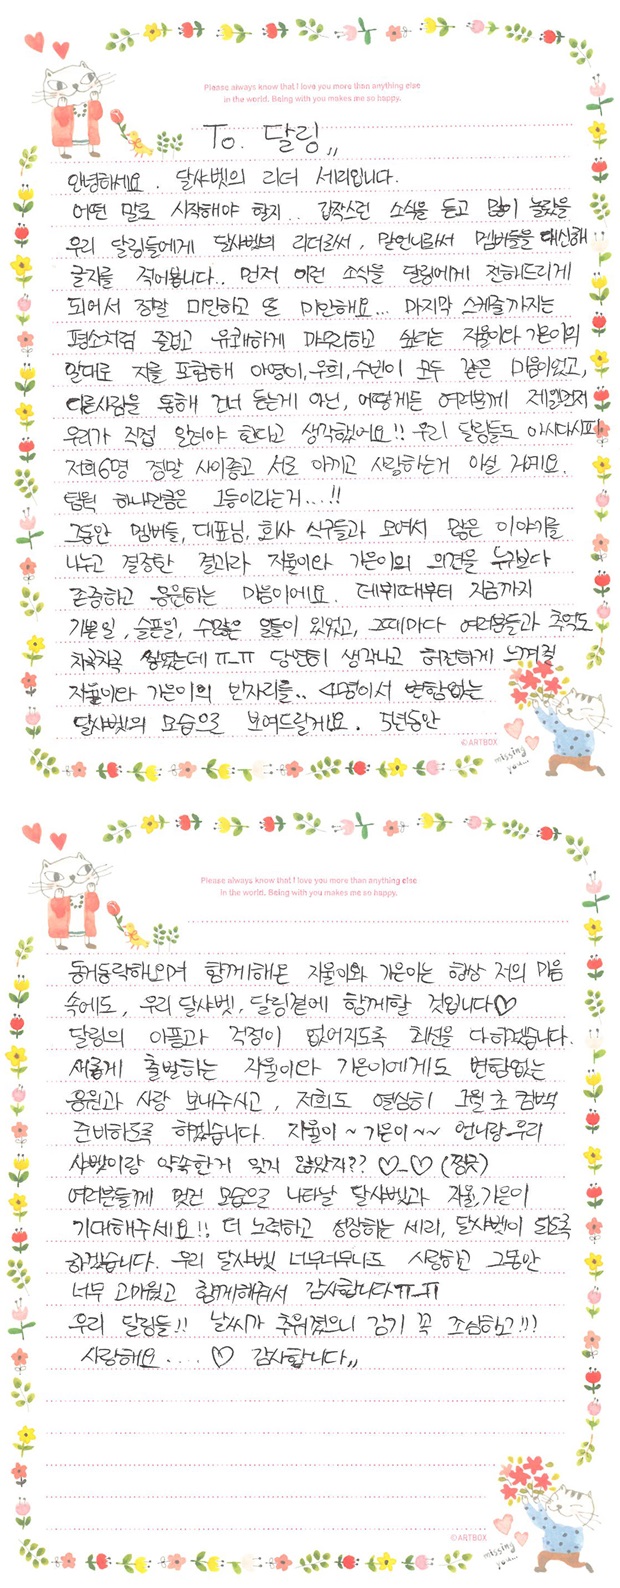 Please always know that I love you more than anything else
in the world. Being with you makes me so happy.
To. 달링,,
안녕하세요. 달샤벳의 리더 세리입니다.
어떤 말로 시작해야 할지.. 갑작스런 소식을 듣고 많이 놀랐을
우리 달링들에게 달샤벳의 리더로서, 맏언니로서 멤버들을 대신해
글자를 적어봅니다.. 먼저 이런 소식을 달링에게 전해드리게
되어서 정말 미안하고 또 미안해요... 마지막 스케줄까지는
평소처럼 즐겁고 유쾌하게 마무리하고 싶다는 지율이와 가은이의
말대로 저를 포함해 아영이,우희,수빈이 모두 같은 마음이었고,
다른사람을 통해 건너 듣는게 아닌, 어떻게든 여러분께 제일먼저
우리가 직접 알려야 한다고 생각했어요!! 우리 달링들도 아시다시피
저희6명 정말 사이좋고 서로 아끼고 사랑하는거 아실 거예요.
팀웍 하나만큼은 1등이라는거...!!
그동안 멤버들, 대표님, 회사 식구들과 모여서 많은 이야기를
나누고 결정한 결과라 지율이와 가은이의 의견을 누구보다
존중하고 응원하는 마음이에요. 데뷔때부터 지금까지
기쁜일, 슬픈일, 수많은 일들이 있었고, 그때마다 여러분들과 추억도
차곡차곡 쌓였는데 ㅠ_ㅠ 당연히 생각나고 허전하게 느껴질
지율이와 가은이의 빈자리를.. 4명이서 변함없는
달샤벳의 모습으로 보여드릴게요. 5년동안
©ARTBOX
missing you...
Please always know that I love you more than anything else
in the world. Being with you makes me so happy.
동거동락하며 함께해온 지율이와 가은이는 항상 저의 마음
속에도, 우리 달샤벳, 달링곁에 함께할 것입니다♡
달링의 아픔과 걱정이 없어지도록 최선을 다하겠습니다.
새롭게 출발하는 지율이와 가은이에게도 변함없는
응원과 사랑 보내주시고, 저희도 열심히 1월 초 컴백
준비하도록 하겠습니다. 지율이~ 가은이~~ 언니랑 우리
샤벳이랑 약속한거 잊지 않았지?? ♡_♡ (찡긋)
여러분들께 멋진 모습으로 나타날 달샤벳과 지율,가은이
기대해주세요!! 더 노력하고 성장하는 세리, 달샤벳이 되도록
하겠습니다. 우리 달샤벳 너무너무나도 사랑하고 그동안
너무 고마웠고 함께해줘서 감사합니다ㅠ_ㅠ
우리 달링들!! 날씨가 추워졌으니 감기 꼭 조심하고!!!
사랑해요.... ♡ 감사합니다,,
©ARTBOX
missing you...